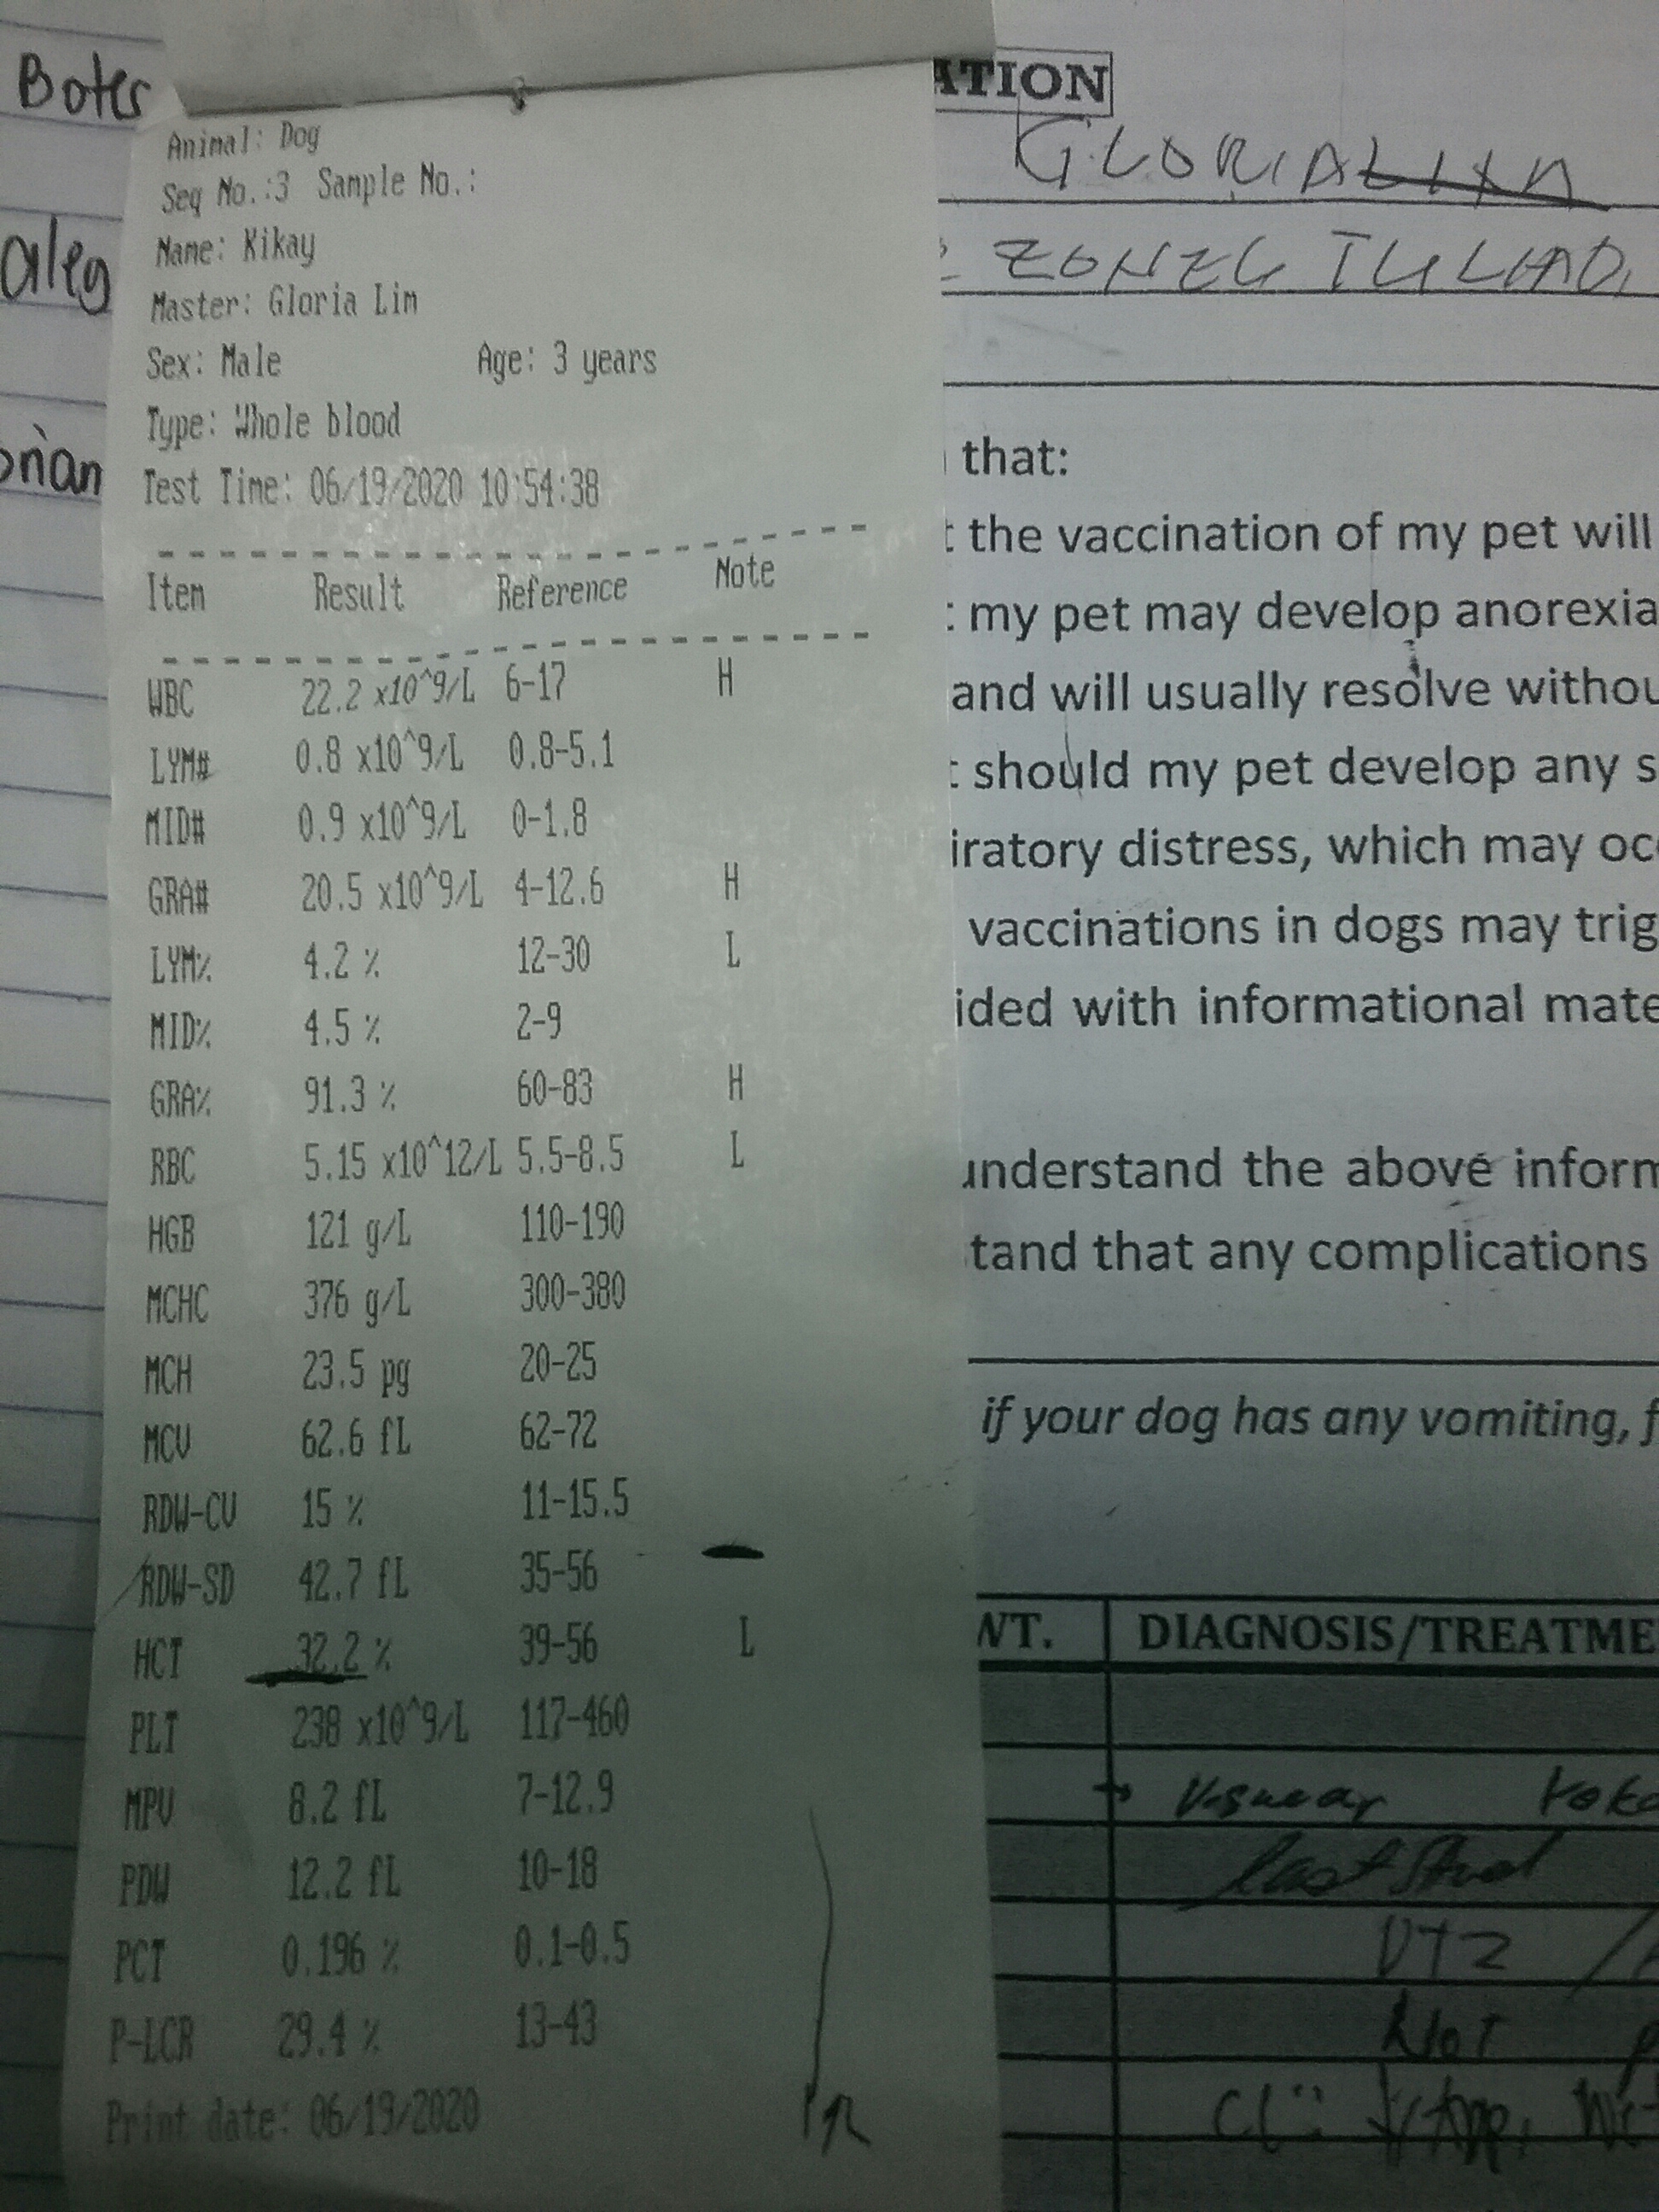 Boter
aleg
Animal: Dog
Seq No.:3 Sample No.:
Name: Kikay
Master: Gloria Lim
Sex: Male Age: 3 years
Type: Whole blood
Test Time: 06/19/2020 10:54:38
Item Result Reference Note
WBC 22.2 x10^9/L 6-17 H
LYM# 0.8 x10^9/L 0.8-5.1
MID# 0.9 x10^9/L 0-1.8
GRA# 20.5 x10^9/L 4-12.6 H
LYM% 4.2 % 12-30 L
MID% 4.5 % 2-9
GRA% 91.3 % 60-83 H
RBC 5.15 x10^12/L 5.5-8.5 L
HGB 121 g/L 110-190
MCHC 376 g/L 300-380
MCH 23.5 pg 20-25
MCV 62.6 fL 62-72
RDW-CV 15 % 11-15.5
RDW-SD 42.7 fL 35-56
HCT 32.2 % 39-56 L
PLT 238 x10^9/L 117-460
MPV 8.2 fL 7-12.9
PDW 12.2 fL 10-18
PCT 0.196 % 0.1-0.5
P-LCR 29.4 % 13-43
Print date: 06/19/2020
ATION
GLORIA
that:
the vaccination of my pet will
my pet may develop anorexia
and will usually resolve withou
should my pet develop any s
iratory distress, which may occ
vaccinations in dogs may trig
ided with informational mate
understand the above inform
tand that any complications
if your dog has any vomiting, f
WT. DIAGNOSIS/TREATME
last
Not